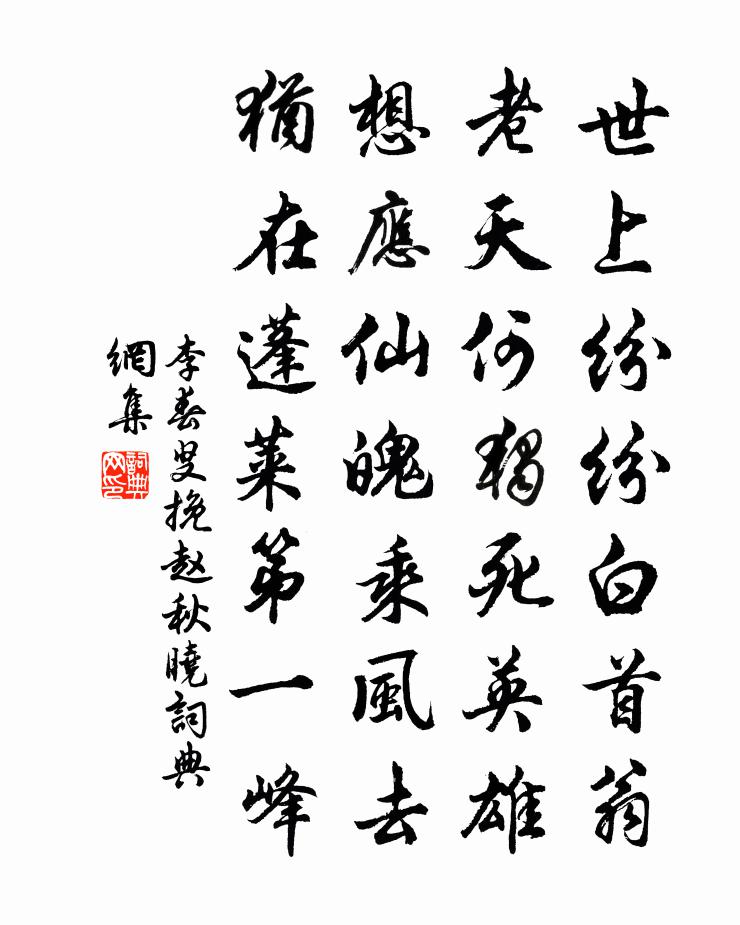 世上紛紛白首翁
老天何獨死英雄
想應仙魄乘風去
猶在蓬萊第一峰
李春叟挽赵秋曉詞典
網集
詞典
网印